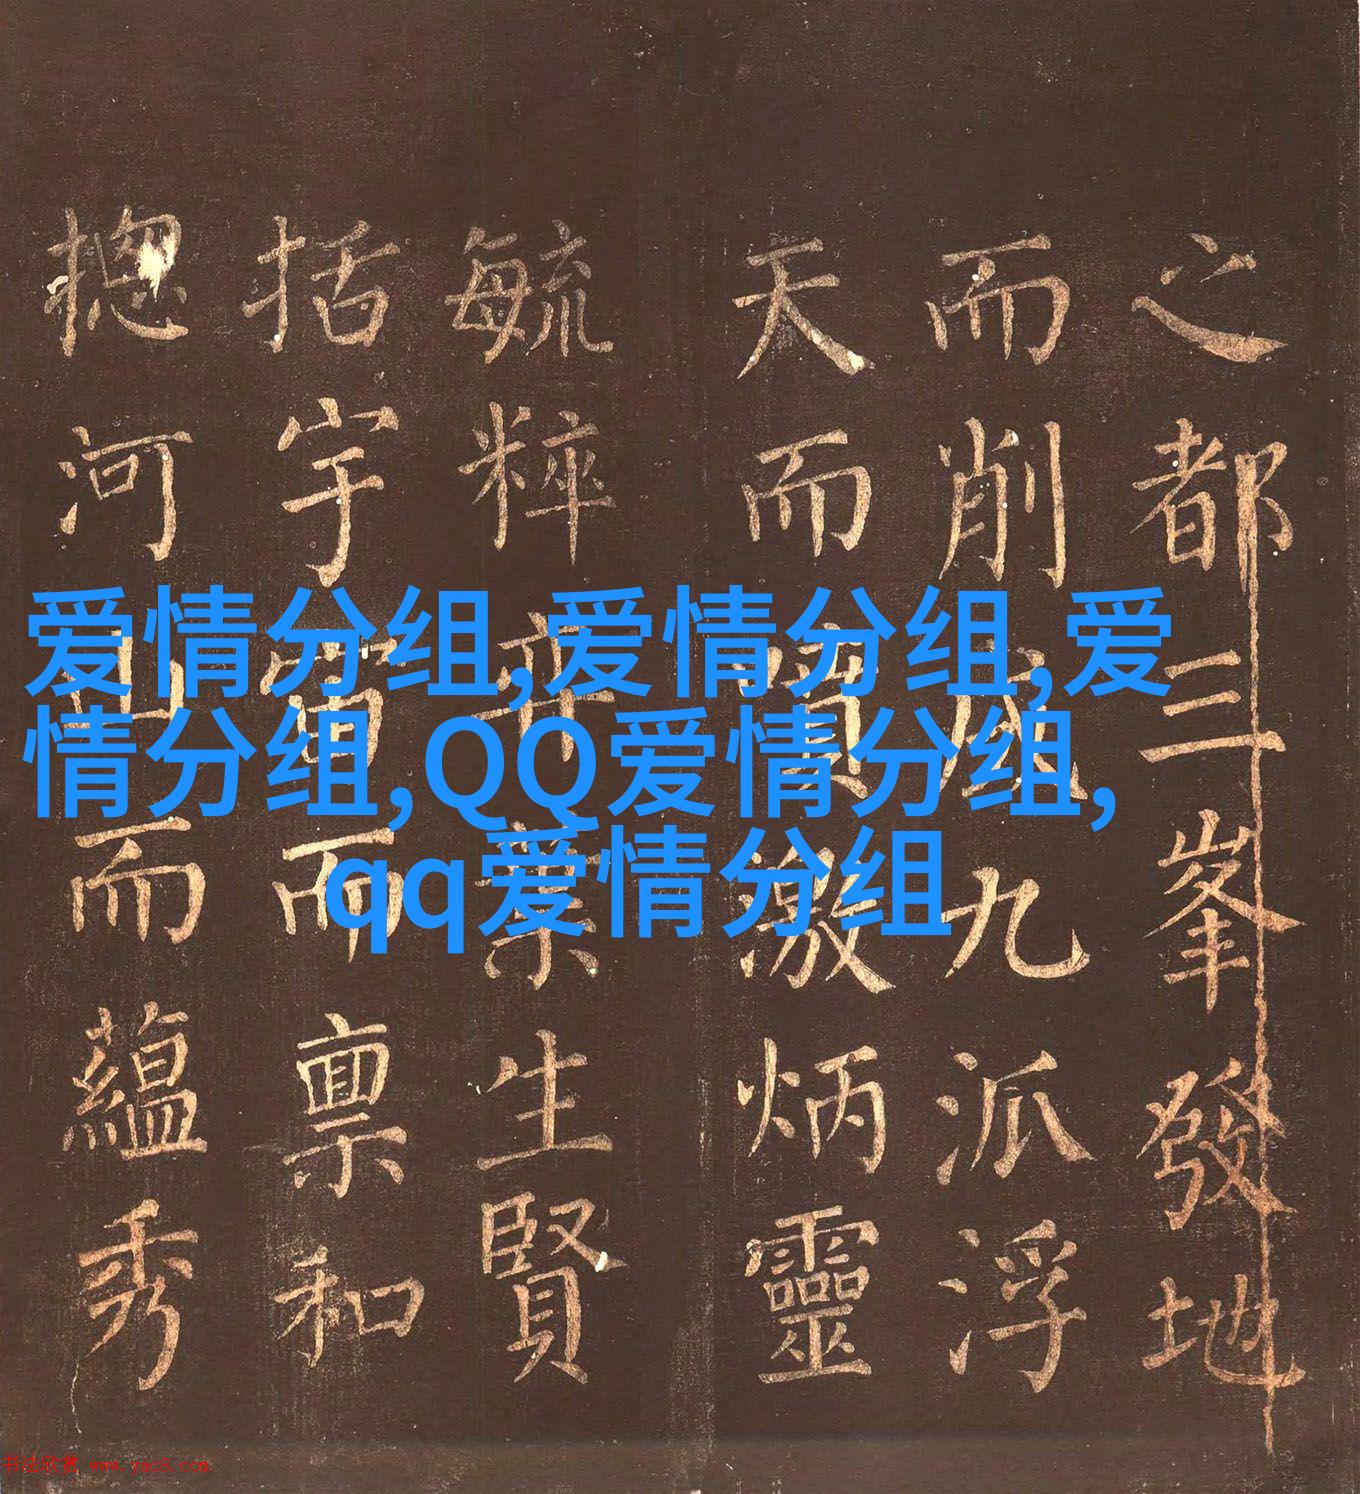 之都三峯發地
而削成九派浮
天而激炳靈
毓粹弈葉生賢
括宇宙而稟和
揔河山而蘊秀
爱情分组,爱情分组,爱
情分组,QQ爱情分组,
qq爱情分组
书法欣赏 www.yac8.com